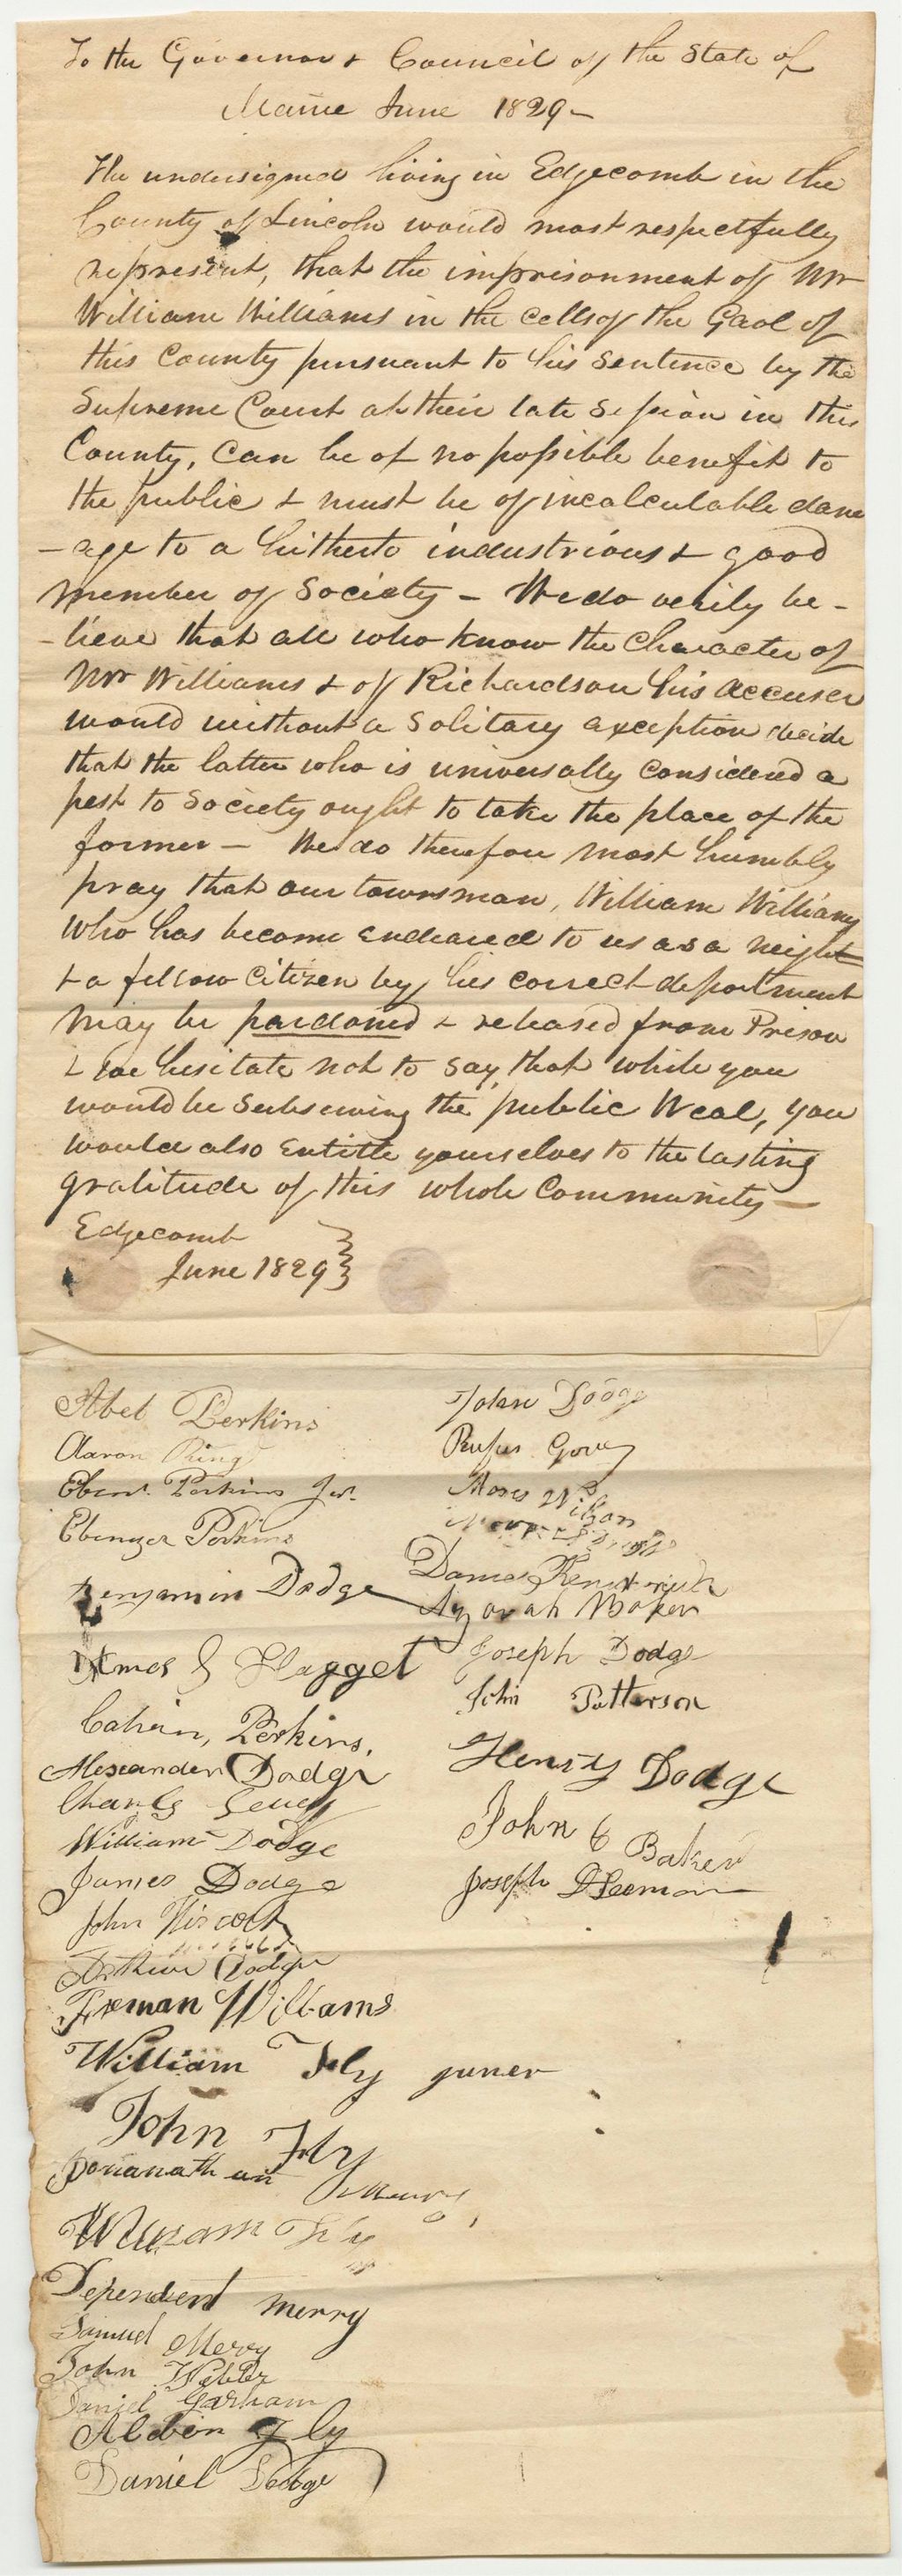 To the Governor & Council of the State of
Maine June 1829 -
The undersigned living in Edgecomb in the
County of Lincoln would most respectfully
represent, that the imprisonment of Mr
William Williams in the cells of the Gaol of
this County pursuant to his Sentence by the
Supreme Court at their late Session in this
County, can be of no possible benefit to
the public & must be of incalculable dam
- age to a hitherto industrious & good
member of Society - We do verily be -
- lieve that all who know the Character of
Mr Williams & of Richardson his accuser
would without a Solitary exception decide
that the latter who is universally considered a
pest to Society ought to take the place of the
former - We do therefore most humbly
pray that our townsman, William Williams
who has become endeared to us as a neighb
& a fellow Citizen by his correct deportment
may be pardoned & released from Prison
& we hesitate not to say, that while you
would be subserving the public Weal, you
would also entitle yourselves to the lasting
gratitude of this whole Community -
Edgecomb
June 1829
Abel Perkins
Aaron Ring
Ebenr. Perkins Jur.
Ebenezer Perkins
Benjamin Dodge
Calvin, Perkins,
Alexander Dodge
Charls
William Dodge
James Dodge
John Hiscock
Arthur Dodge
Freman Williams
William Fly juner
John Fly
William Fly
Dependent merry
Samuel Merry
John Webber
Daniel
Alden Fly
Daniel Dodge
John Dodge
Rufus Gove
Moses Wilson
Baker
Joseph Dodge
John Patterson
Henry Dodge
John C Baker
Joseph